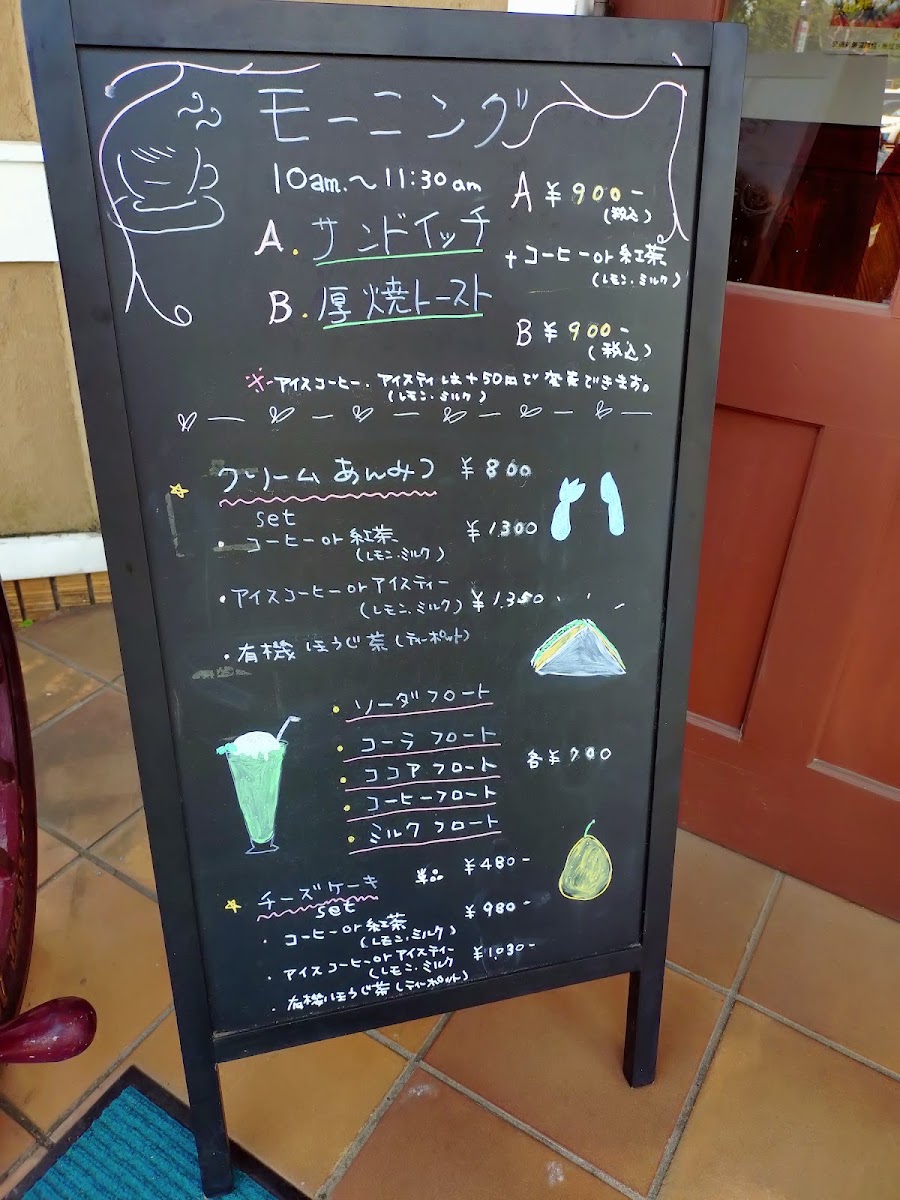 モーニング
10am.～11:30am
A. サンドイッチ
B. 厚焼トースト
A ¥900-
(税込)
+ コーヒーor紅茶
(レモン・ミルク)
B ¥900-
(税込)
※アイスコーヒー・アイスティは+50円で変更できます。
(レモン・ミルク)
クリームあんみつ ¥800
set
・コーヒーor紅茶 ¥1.300
(レモン・ミルク)
・アイスコーヒーorアイスティー
(レモン・ミルク) ¥1.350
・有機ほうじ茶(ティーポット)
・ソーダフロート
・コーラフロート
・ココアフロート
・コーヒーフロート
・ミルクフロート
各¥700
チーズケーキ 単品 ¥480-
set
・コーヒーor紅茶 ¥980-
(レモン・ミルク)
・アイスコーヒーorアイスティー ¥1.030-
(レモン・ミルク
・有機ほうじ茶(ティーポット)